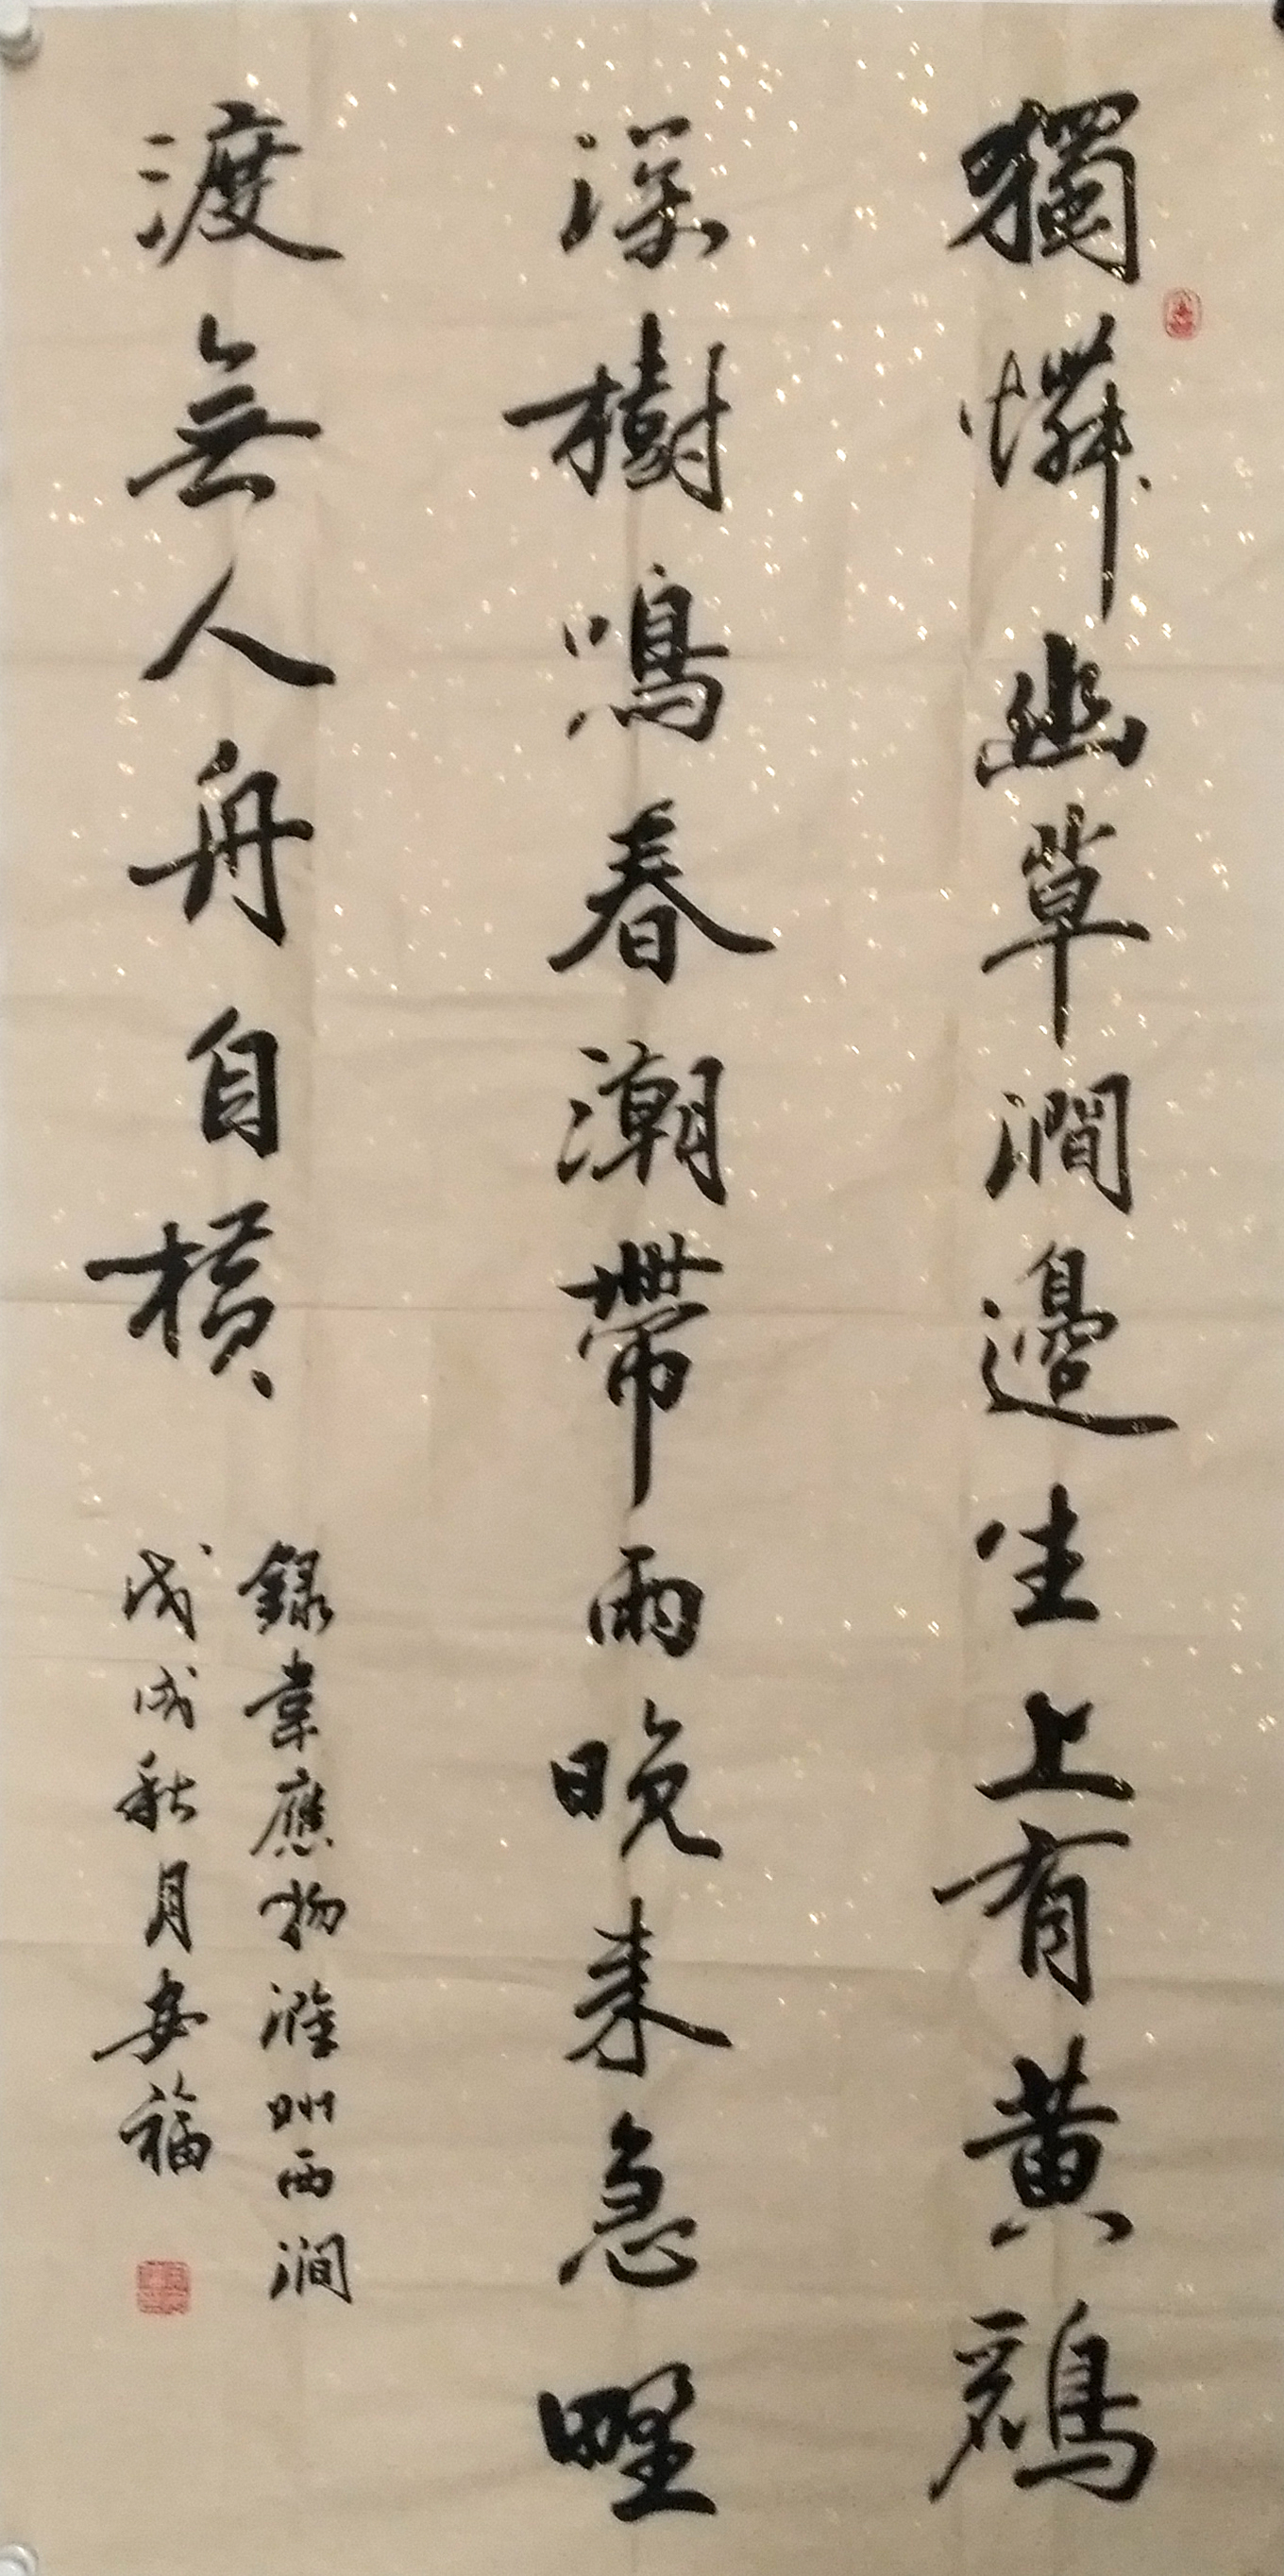 獨憐幽草澗邊生上有黃鸝
深樹鳴春潮帶雨晚来急野
渡無人舟自橫
録韋應物滁州西澗
戊戌秋月安福